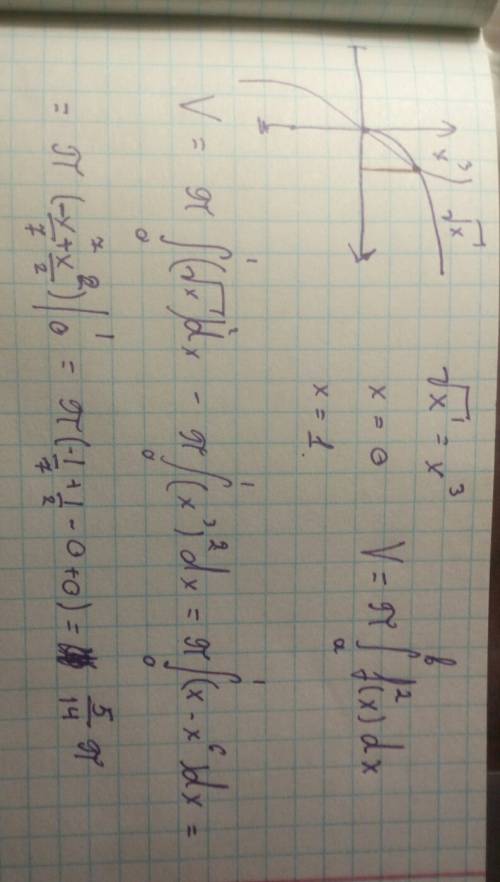 √x
x³
√x = x³
x = 0
x = 1
V = π ∫ₐᵇ f²(x) dx
V = π ∫₀¹ (√x)² dx - π ∫₀¹ (x³)² dx = π ∫₀¹ (x - x⁶) dx =
= π (-x⁷/7 + x²/2) |₀¹ = π (-1/7 + 1/2 - 0 + 0) = 5/14 π